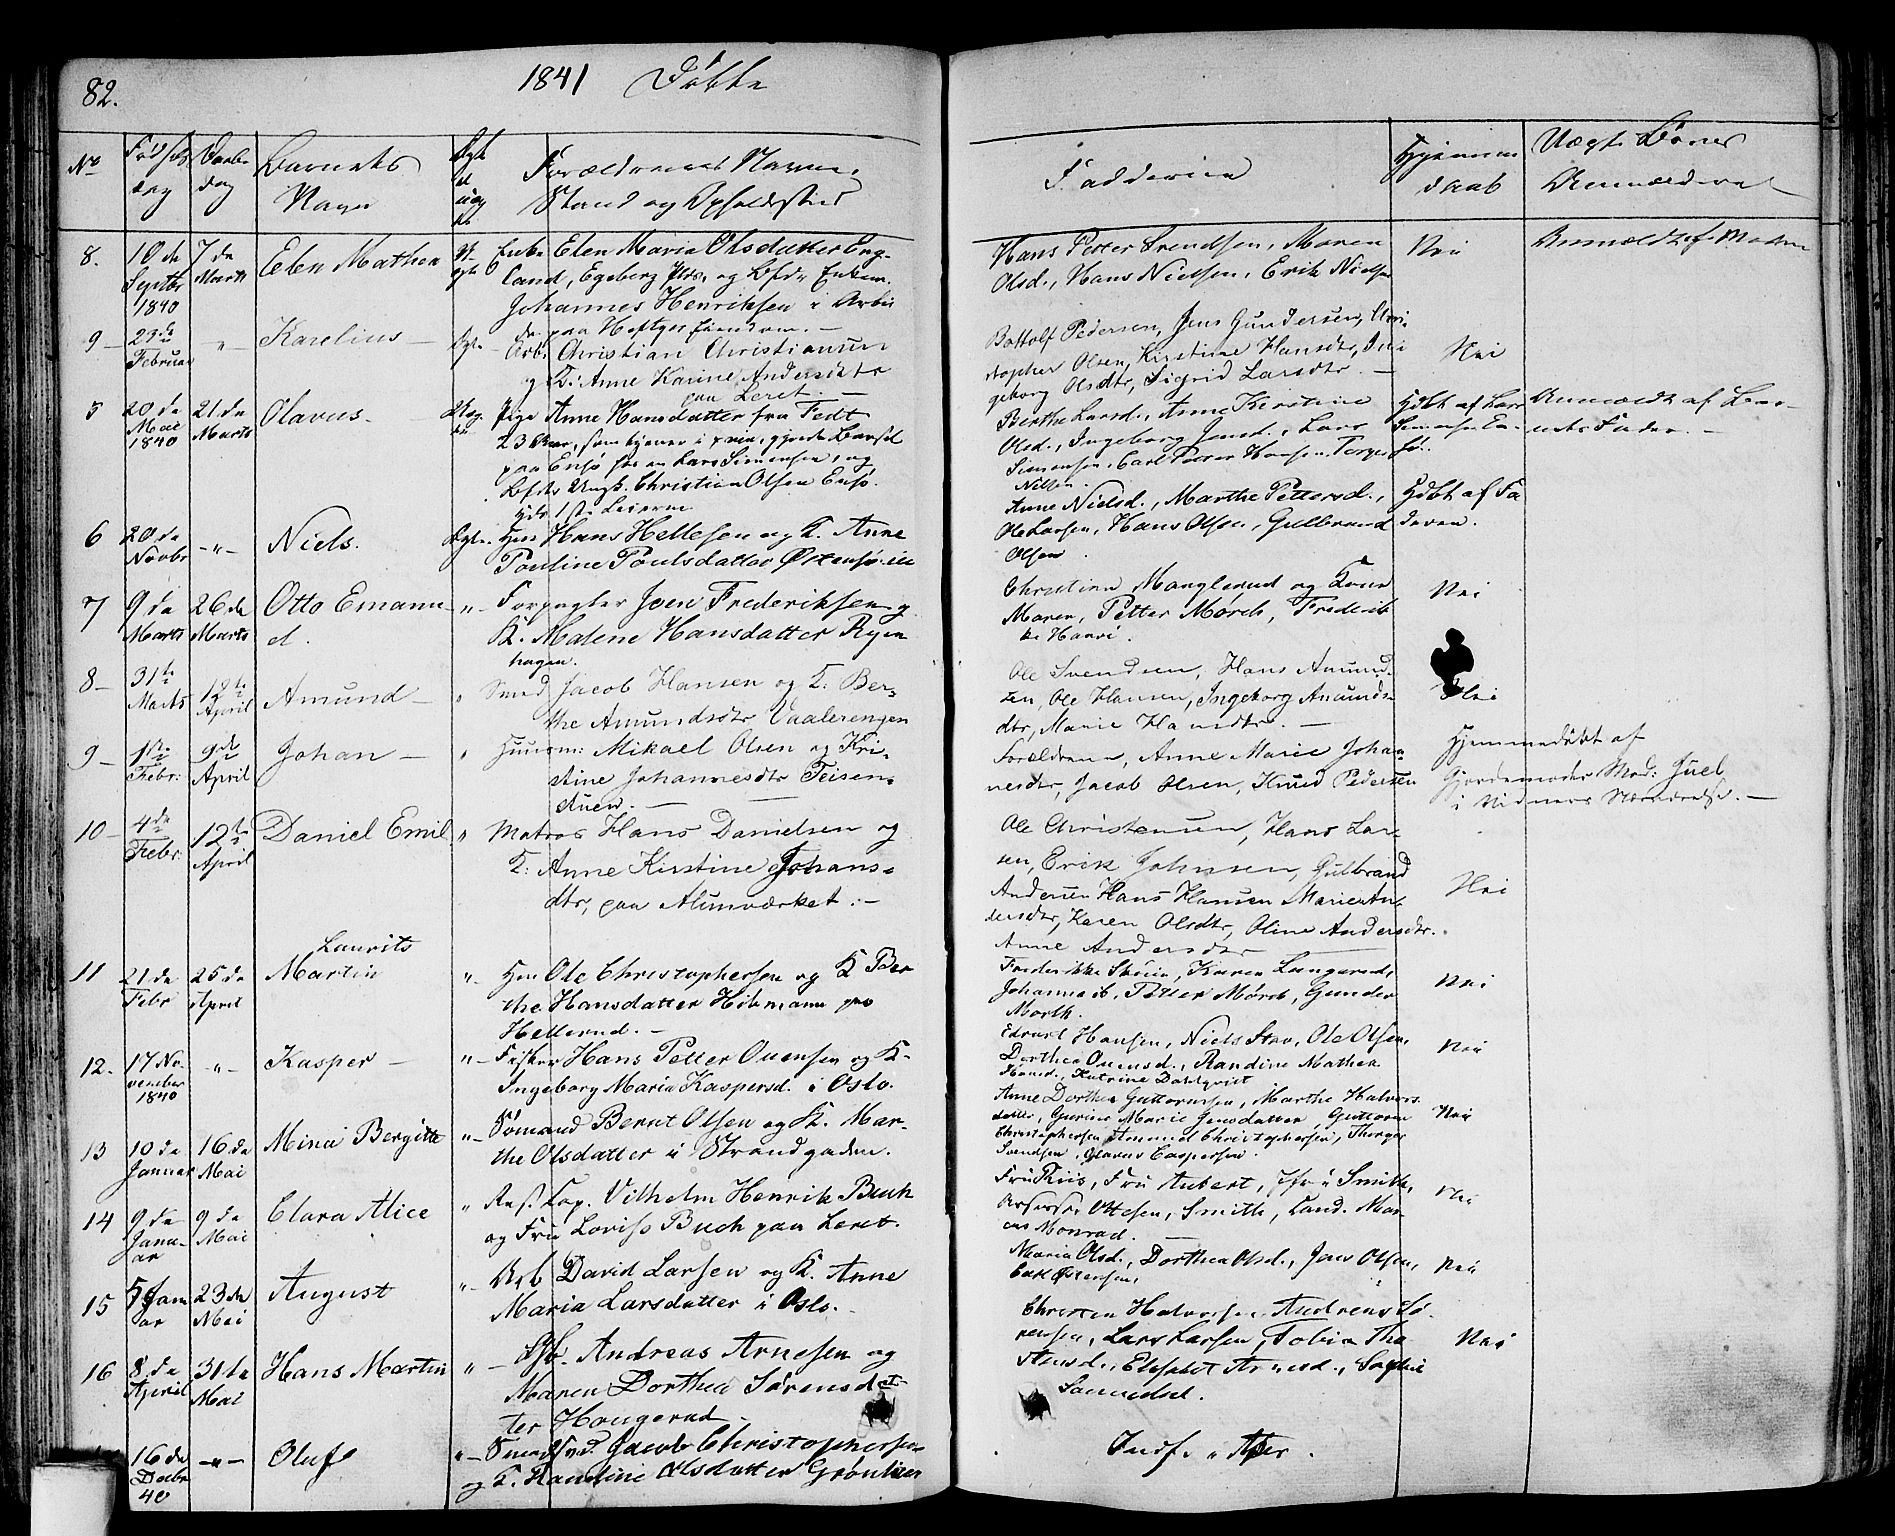 82.
1841 Döbte
No
Fødsels
dag
Daabs
dag
Barnets
Navn
Ægte
el
uæg
te
Forældrenes Navne,
Stand og Opholdsted
Fadderne
Hjemme
daab
Uægte Börns
Anmeldere
8.
10 de
Septbr
1840
7 de
Marts
Elen Mathea
Enke Elen Maria Olsdatter Eng-
land, Egeberg
Johannes Henriksen
paa Heftyes Eiendom. —
Hans Petter Svendsen, Maren
Olsd., Hans Nielsen, Erik Nielsen
Nei
Anmeldt af Moderen
9 —
23de
Februar
— " —
Karelius —
Ægte —
Arb. Christian Christiansen
og K: Anne Karine Andersdtr
paa Leret. —
Bottolf Pedersen, Jens Gundersen, Chri-
stopher Olsen, Kirstine Hansdtr, Inge-
geborg Olsdtr, Sigrid Larsdtr. —
Nei
5
20 de
Mai
1840
21 de
Marts
Olavus.
Uæg-
te
Pige Anne Hansdatter fra Fedt
23 Aar, som tjener i
paa Ensø hos en Lars Simensen, og
Ungk. Christian Olsen Ensø.
1ste Leierm
Berthe Larsd., Anne Kirstine
Olsd., Ingeborg Jensd., Lars
Simensen, Carl Petter Hansen, Torger
Nilsen.
Hdbt af Lars
Simensen En-
sø.
Anmeldt af Bar-
nets Fader. —
6
20 de
Novbr
— " —
Niels.
Ægte.
Huus Hans Hellesen og K. Anne
Pouline Poulsdatter Østensjø eie
Anne Nielsd., Marthe Pettersd.,
Ole Larsen, Hans Olsen, Gulbrand
Olsen
Hdbt af Fa
deren.
7
9 de
Marts
26 de
Marts
Otto Emanu
el.
" —
Forpagter Joen Frederiksen og
K. Malene Hansdatter Ryen
hagen.
Christian Manglerud og Kone
Maren, Petter Mørch, Frederik
ke Hansi.
Nei
8 —
31te
Marts
12te
April
Amund —
"
Smed Jacob Hansen og K. Ber-
the Amundsdtr Vaalerengen
Ole Svendsen, Hans Amund-
sen, Ole Hansen, Ingeborg Amunds-
dtr, Marie Hansdtr. —
Nei
9 —
1ste
Febr:
9de
April
Johan —
"
Huusm: Mikael Olsen og Kri-
stine Johannesdtr Teisen-
stuen. —
Forældrene, Anne Marie Johan-
nesdtr, Jacob Olsen, Knud Pedersen
Hjemmedöbt af
Gjordemoder Mad: Juel
i Vidners Nærværelse. —
10 —
4de
Febr:
12te
April
Daniel Emil
"
Matros Hans Danielsen og
K: Anne Kirstine Johans-
dtr, paa Alunværket. —
Ole Christensen, Hans Lar-
sen, Erik Johnsen, Gulbrand
Andersen Hans Hansen Marie An-
dersdtr, Karen Olsdtr, Oline Andersdtr.
Anne Andersdtr
Nei
11
21 de
Febr
25 de
April
Laurits
Martin
" —
Ole Christophersen og K Ber
the Hansdatter
Hellerud. —
Frederikke Skøien, Karen Lungerud,
Johannes, Petter Mørch, Gunder
Morth.
Nei
12.
17 No
vember
1840
— " —
Kasper —
" —
Fisker Hans Petter Ouensen og K.
Ingeborg Maria Kaspersd. i Oslo.
Edvart Hansen, Niels Stav, Ole Olsen,
Dorthea Ouensd., Randine Mathea
Hansd., Katrine Dahlqvist
Nei
13
10 de
Januar
16 de
Mai
Mina Bergitte
" —
Sømand Bernt Olsen og K. Mar-
the Olsdatter i Strandgaden.
Anne Dorthea Guttormsen, Marthe Halvors
datter, Gurine Marie Jensdatter, Guttorm
Christophersen Amund Christophersen, Thorger
Svendsen, Olavus Caspersen.
Nei
14
9 de
Janu-
ar
9 de
Mai
Clara Alice
"
Res. Cap. Vilhelm Henrik Buch
og Fru Lovise Buch paa Leret.
Fru Riis, Fru Aubert, Jfru Smith,
Assessor Ottesen, Smith, Cand. Mar-
cus Monrad. —
Nei
15
5 Janu
ar
23 de
Mai
August
" —
Arb David Larsen og K. Anne
Maria Larsdatter i Oslo.
Maria Olsd., Dorthea Olsd., Jens Olsen,
Erik Østensen,
Nei
16
8 de
April
31te
Mai
Hans Martin
" —
Andreas Arnesen og
Maren Dorthea Sørensdat-
ter Haugerud —
Christen Halvorsen Andreas Sø-
rensen, Lars Larsen, Tobia Tho
Elisabet Arnesd., Sophie
Samuelsd.
Nei
16 de
Decbr
40
— " —
Oluf
" —
Smed Jacob Christophersen
og K. Randine Olsdatter Grønlien